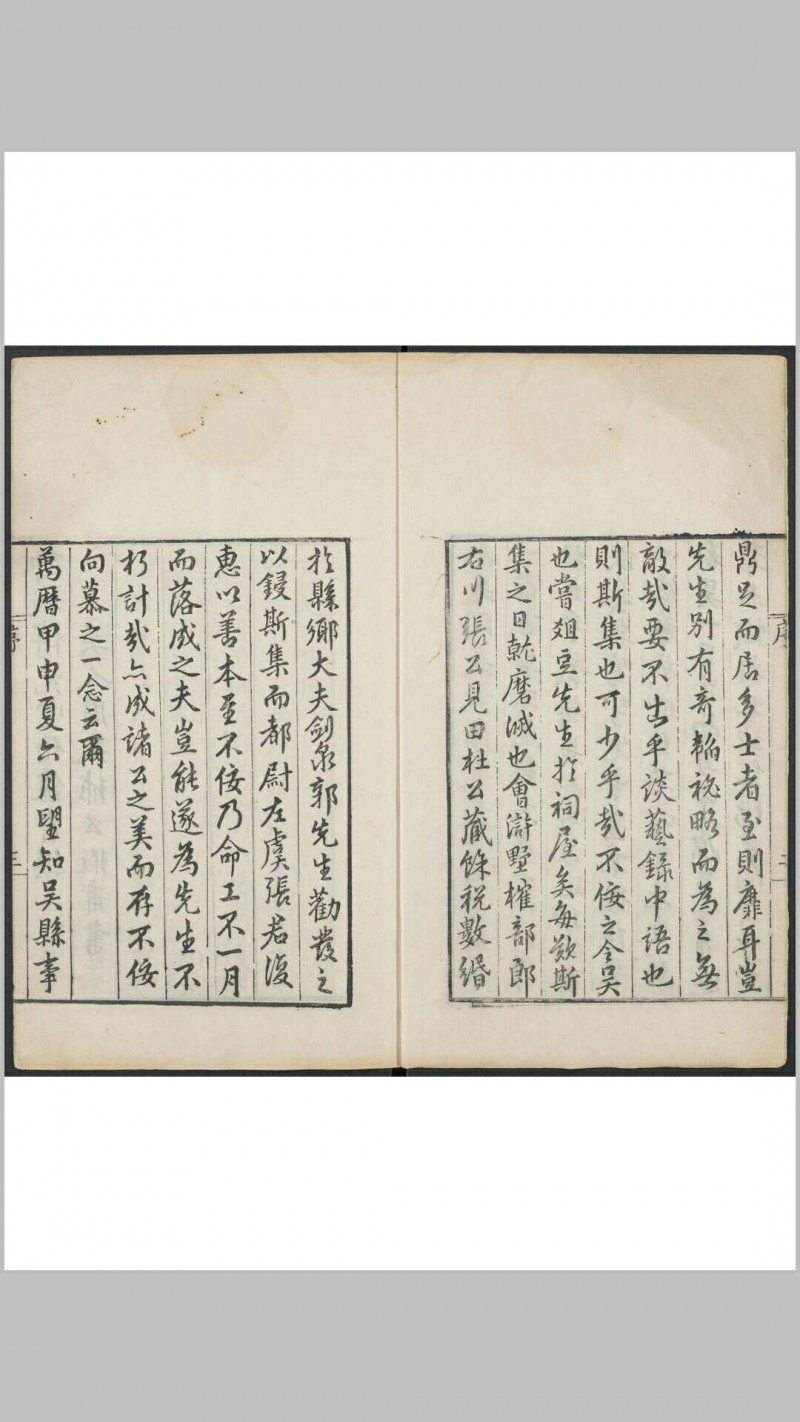 鼎足而居多士者至則靡耳豈
先生別有奇韜秘略而為之無
敵哉要不出乎談藝錄中語也
則斯集也可少乎哉不佞之令吳
也嘗爼豆先生扵祠屋矣每歎斯
集之日就磨滅也會滸墅榷部郎
右川張公見田杜公藏餘稅數緡
扵縣鄉大夫劍泉郭先生勸發之
以鋟斯集而都尉左虞張君復
惠以善本至不佞乃命工不一月
而落成之夫豈能遂為先生不
朽計哉亦成諸公之美而存不佞
向慕之一念云爾
萬曆甲申夏六月望知吳縣事
序
三